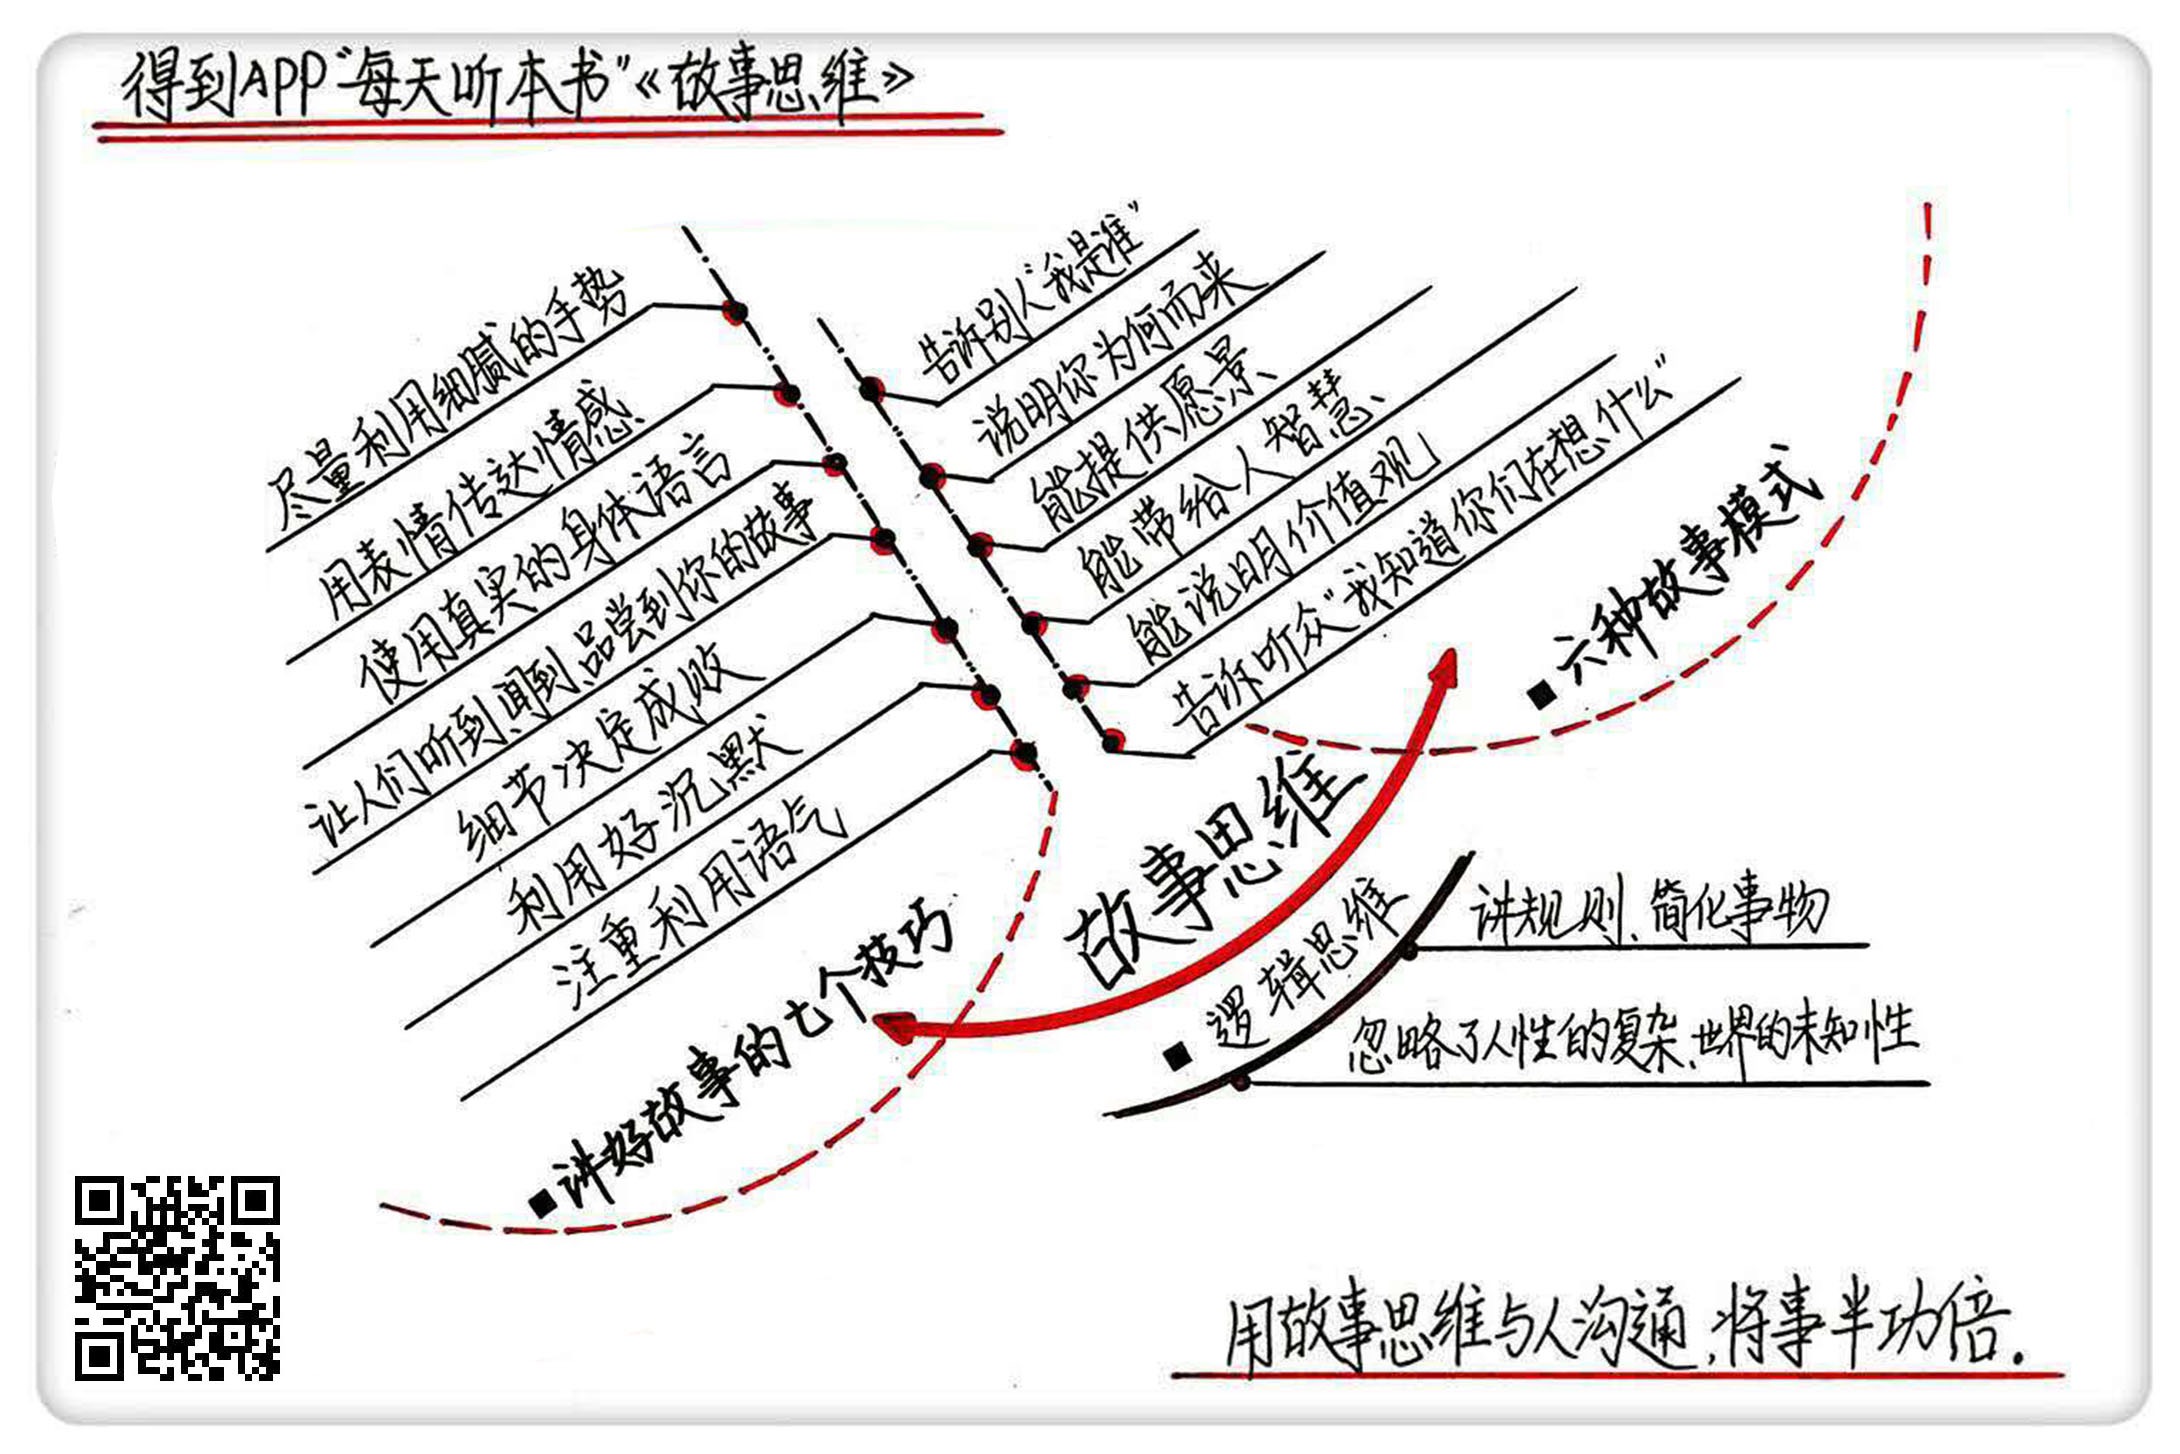 得到APP“每天听本书”《故事思维》
尽量利用细腻的手势
用表情传达情感
使用真实的身体语言
让人们听到、闻到、品尝到你的故事
细节决定成败
利用好沉默
注重利用语气
■讲好故事的七个技巧
告诉别人“我是谁”
说明你为何而来
能提供愿景
能带给人智慧
能说明价值观
告诉听众“我知道你们在想什么”
■六种故事模式
故事思维
■逻辑思维
讲规则、简化事物
忽略了人性的复杂、世界的未知性
用故事思维与人沟通,将事半功倍.